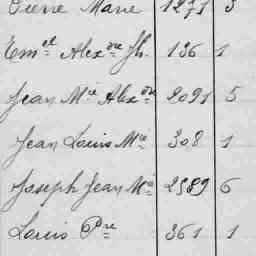 Pierre Marie 1271 3
Em.el Alex.dre Jh. 136 1
Jean M.ie Alex.dre 2091 5
Jean Louis M.ie 308 1
Joseph Jean M.ie 2589 6
Louis P.re 361 1